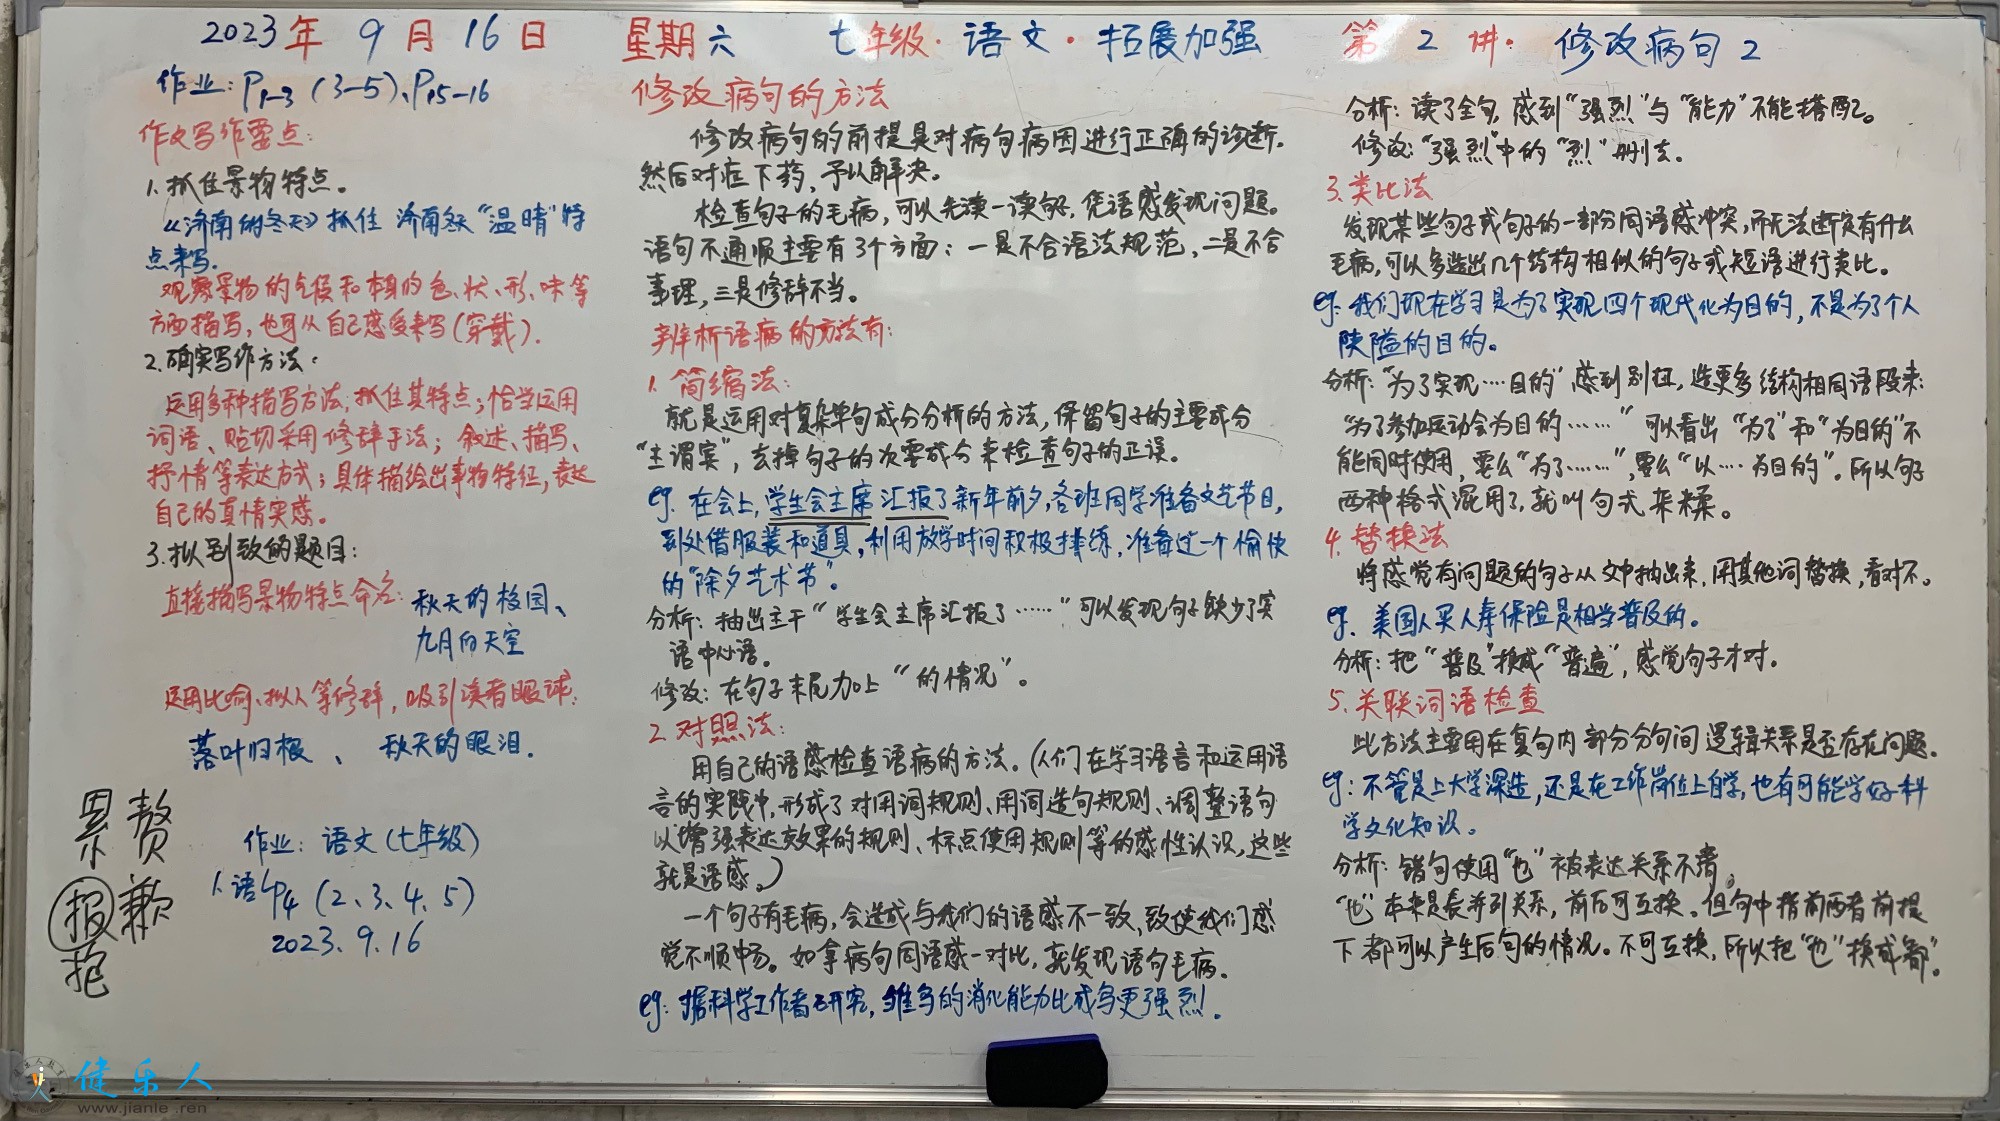 2023年9月16日 星期六 七年级·语文·拓展加强 第2讲·修改病句2
作业:P1-3(3-5)、P15-16
作文写作要点:
1.抓住景物特点。
《济南的冬天》抓住济南冬天“温晴”特
点来写.
观察景物的气侯和本身的色、状、形、味等
方面描写,也可从自己感受来写(穿戴).
2.确实写作方法:
运用多种描写方法,抓住其特点;恰当运用
词语、贴切采用修辞手法;叙述、描写、
抒情等表达方式;具体描绘出事物特征,表达
自己的真情实感。
3.拟别致的题目:
直接描写景物特点命名:秋天的校园、
九月的天空
运用比喻、拟人等修辞,吸引读者眼球:
落叶归根、秋天的眼泪.
累赘
报歉
抱
作业:语文(七年级)
1.语P4(2、3、4、5)
2023.9.16
修改病句的方法
修改病句的前提是对病句病因进行正确的诊断.
然后对症下药,予以解决。
检查句子的毛病,可以先读一读句子,凭语感发现问题。
语句不通顺主要有3个方面:一是不合语法规范,二是不合
事理,三是修辞不当。
辨析语病的方法有:
1.简缩法:
就是运用对复杂单句成分分析的方法,保留句子的主要成分
“主谓宾”,去掉句子的次要成分来检查句子的正误。
eg.在会上,学生会主席汇报了新年前夕,各班同学准备文艺节目,
到处借服装和道具,利用放学时间积极排练,准备过一个愉快
的“除夕艺术节”.
分析:抽出主干“学生会主席汇报了……”可以发现句子缺少了宾
语中心语。
修改:在句子末尾加上“的情况”。
2.对照法:
用自己的语感检查语病的方法。(人们在学习语言和运用语
言的实践中,形成了对用词规则、用词造句规则、调整语句
以增强表达效果的规则、标点使用规则等的感性认识,这些
就是语感。)
一个句子有毛病,会造成与我们的语感不一致,致使我们感
觉不顺畅。如拿病句同语感一对比,就发现语句毛病.
eg:据科学工作者研究,雏鸟的消化能力比成鸟更强烈.
分析:读了全句,感到“强烈”与“能力”不能搭配。
修改:“强烈”中的“烈”删去.
3.类比法
发现某些句子或句子的一部分同语感冲突,而无法断定有什么
毛病,可以多造出几个结构相似的句子或短语进行类比。
eg:我们现在学习是为了实现四个现代化为目的,不是为了个人
狭隘的目的。
分析:“为了实现……目的”感到别扭,造更多结构相同语段来:
“为了参加运动会为目的……”可以看出“为了”和“为目的”不
能同时使用,要么“为了……”,要么“以……为目的”.所以句子
两种格式混用了,就叫句式杂糅。
4.替换法
将感觉有问题的句子从文中抽出来,用其他词替换,看对不。
eg.美国人买人寿保险是相当普及的。
分析:把“普及”换成“普遍”,感觉句子才对.
5.关联词语检查
此方法主要用在复句内部分分句间逻辑关系是否存在问题.
eg:不管是上大学深造,还是在工作岗位上自学,也有可能学好科
学文化知识。
分析:错句使用“也”被表达关系不清,
“也”本来是表并列关系,前后可互换。但句中指前两者前提
下都可以产生后句的情况。不可互换,所以把“也”换成“都”.
健乐人
www.jianle.ren